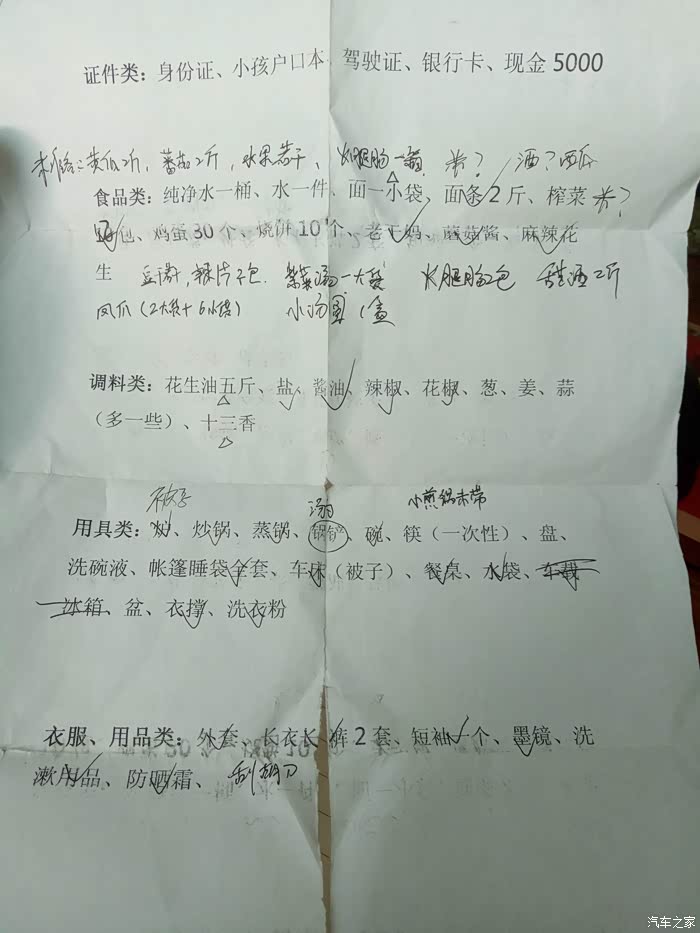 证件类：身份证、小孩户口本、驾驶证、银行卡、现金5000
黄瓜2斤，番茄2斤，水果若干、火腿肠一箱 米？ 酒？西瓜
食品类：纯净水一桶、水一件、面一小袋、面条2斤、榨菜 米？
面包、鸡蛋30个、烧饼10个、老干妈、蘑菇酱、麻辣花
生 豆腐，辣片2包 紫菜汤一大袋 火腿肠2包 甜酒2斤
凤爪（2大袋+6小袋） 小汤圆1盒
调料类：花生油五斤、盐、酱油、辣椒、花椒、葱、姜、蒜
（多一些）、十三香
被子 小煎锅未带
用具类：炉、炒锅、蒸锅、锅铲、碗、筷（一次性）、盘、
洗碗液、帐篷睡袋全套、车床（被子）、餐桌、水袋、车载
冰箱、盆、衣撑、洗衣粉
衣服、用品类：外套、长衣长裤2套、短袖一个、墨镜、洗
漱用品、防晒霜、刮胡刀
汽车之家